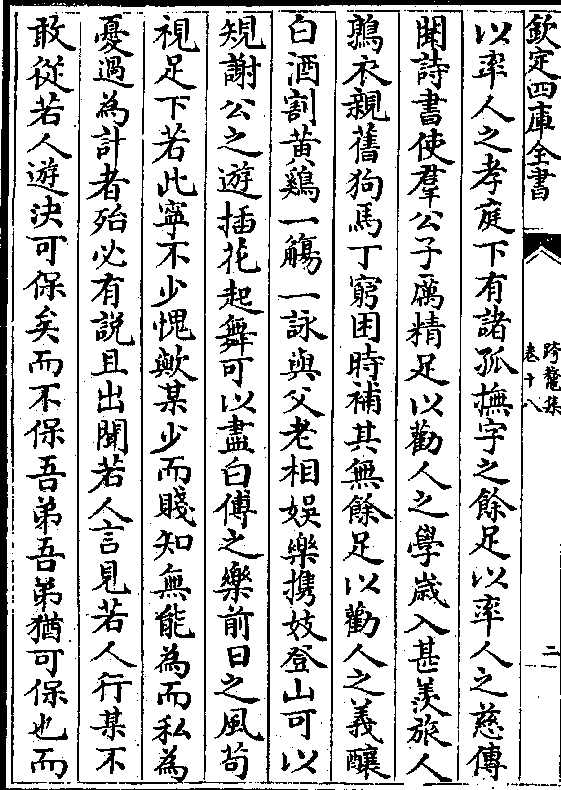 欽定四庫全書
跨鼇集
卷十八
二
以率人之孝庭下有諸孤撫字之餘足以率人之慈傳
聞詩書使羣公子厲精足以勸人之學歳入甚羨旅人
鶉衣親舊狗馬丁窮困時補其無餘足以勸人之義釀
白酒割黄鷄一觴一詠與父老相娯樂携妓登山可以
規謝公之遊插花起舞可以盡白傅之樂前日之風茍
視足下若此寧不少愧歟某少而賤知無能為而私為
憂過為計者殆必有説且出聞若人言見若人行某不
敢從若人遊決可保矣而不保吾弟吾弟猶可保也而